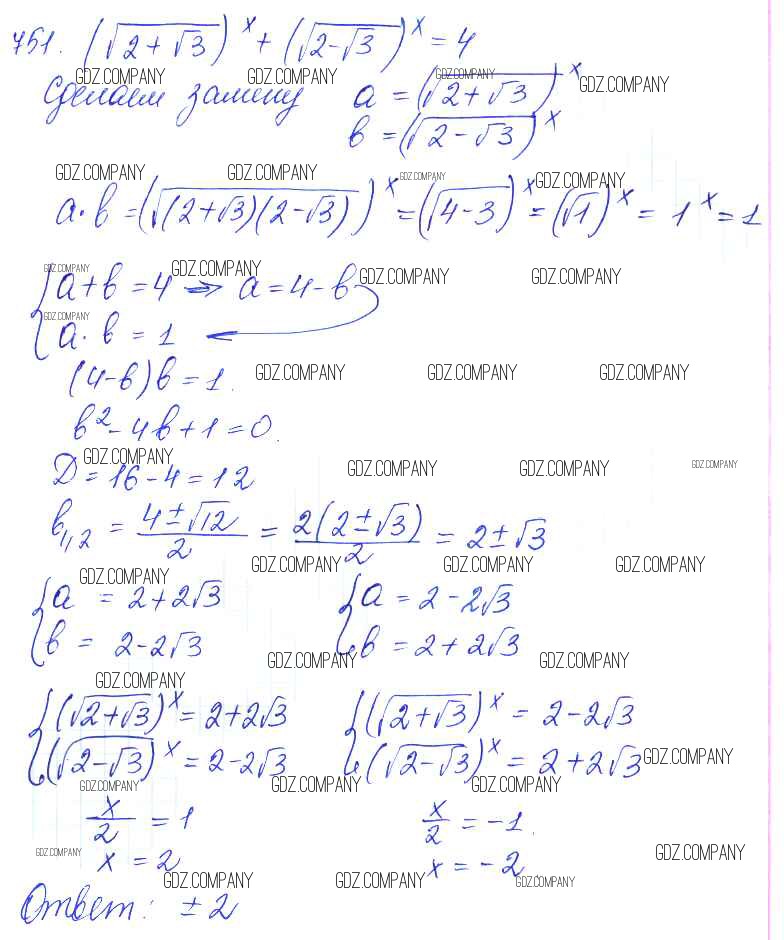 751. (√(2+√3))^x + (√(2-√3))^x = 4
GDZ.COMPANY GDZ.COMPANY GDZ.COMPANY GDZ.COMPANY
Сделаем замену a = (√(2+√3))^x
b = (√(2-√3))^x
GDZ.COMPANY GDZ.COMPANY GDZ.COMPANY GDZ.COMPANY
a·b = (√((2+√3)(2-√3)))^x = (√(4-3))^x = (√1)^x = 1^x = 1
GDZ.COMPANY GDZ.COMPANY GDZ.COMPANY GDZ.COMPANY
{ a+b = 4 => a = 4-b
GDZ.COMPANY
a·b = 1
(4-b)b = 1. GDZ.COMPANY GDZ.COMPANY GDZ.COMPANY
b²-4b+1=0.
GDZ.COMPANY GDZ.COMPANY GDZ.COMPANY GDZ.COMPANY
D = 16-4 = 12
b1,2 = (4±√12)/2 = 2(2±√3)/2 = 2±√3
GDZ.COMPANY GDZ.COMPANY GDZ.COMPANY GDZ.COMPANY
{ a = 2+2√3 { a = 2-2√3
b = 2-2√3 b = 2+2√3
GDZ.COMPANY GDZ.COMPANY
GDZ.COMPANY
{ (√(2+√3))^x = 2+2√3 { (√(2+√3))^x = 2-2√3
(√(2-√3))^x = 2-2√3 (√(2-√3))^x = 2+2√3 GDZ.COMPANY
GDZ.COMPANY GDZ.COMPANY GDZ.COMPANY
x/2 = 1 x/2 = -1.
GDZ.COMPANY GDZ.COMPANY
x = 2 x = -2
GDZ.COMPANY GDZ.COMPANY GDZ.COMPANY
Ответ: ±2